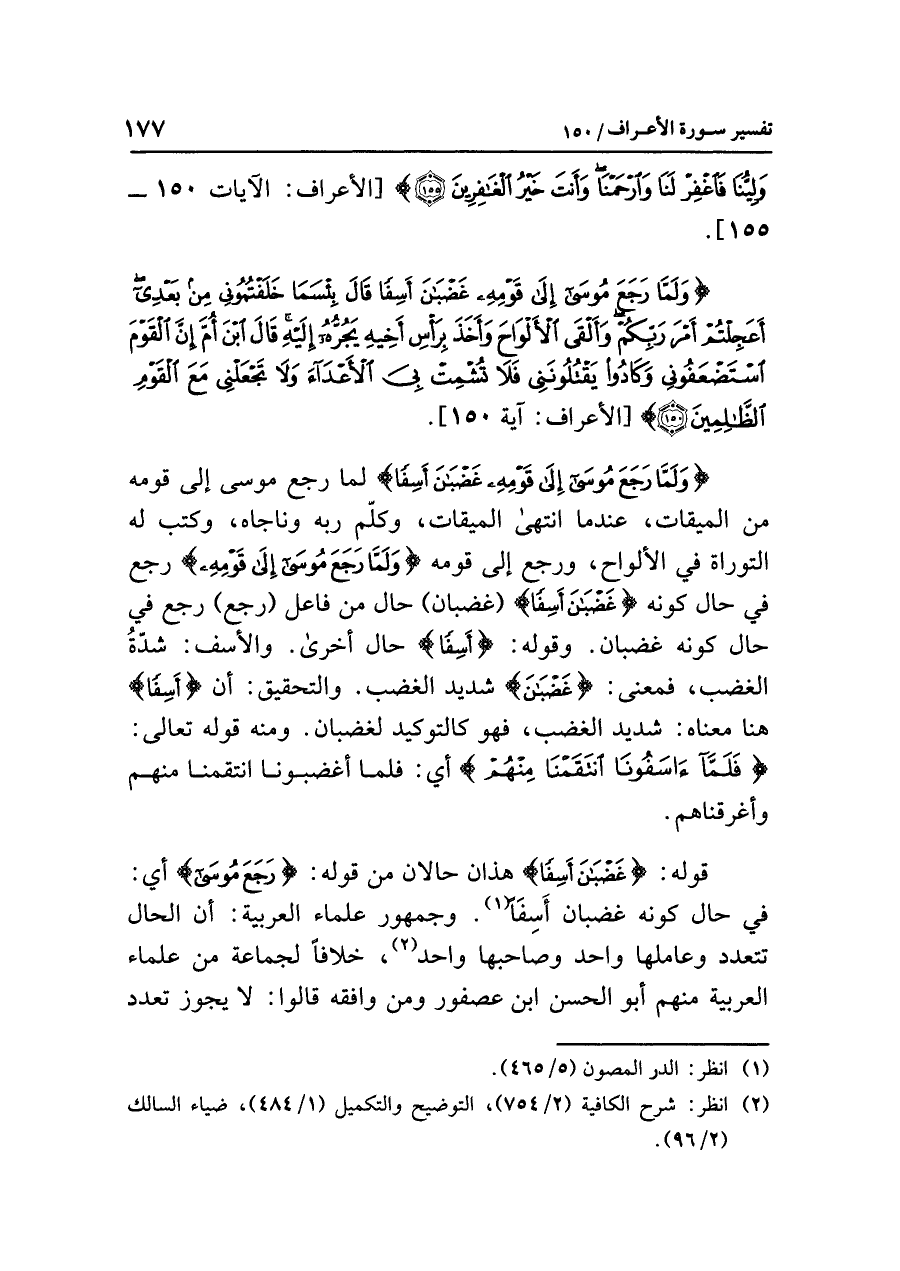 تفسير سورة الأعراف/ ١٥٠ ١٧٧
وَلِيُّنَا فَٱغْفِرْ لَنَا وَٱرْحَمْنَاۖ وَأَنتَ خَيْرُ ٱلْغَٰفِرِينَ ١٥٥﴾ [الأعراف: الآيات ١٥٠ ــ
١٥٥].
﴿وَلَمَّا رَجَعَ مُوسَىٰٓ إِلَىٰ قَوْمِهِۦ غَضْبَٰنَ أَسِفًا قَالَ بِئْسَمَا خَلَفْتُمُونِى مِنۢ بَعْدِىٓۖ
أَعَجِلْتُمْ أَمْرَ رَبِّكُمْۖ وَأَلْقَى ٱلْأَلْوَاحَ وَأَخَذَ بِرَأْسِ أَخِيهِ يَجُرُّهُۥٓ إِلَيْهِۚ قَالَ ٱبْنَ أُمَّ إِنَّ ٱلْقَوْمَ
ٱسْتَضْعَفُونِى وَكَادُوا۟ يَقْتُلُونَنِى فَلَا تُشْمِتْ بِىَ ٱلْأَعْدَآءَ وَلَا تَجْعَلْنِى مَعَ ٱلْقَوْمِ
ٱلظَّٰلِمِينَ ١٥٠﴾ [الأعراف: آية ١٥٠].
﴿وَلَمَّا رَجَعَ مُوسَىٰٓ إِلَىٰ قَوْمِهِۦ غَضْبَٰنَ أَسِفًا﴾ لما رجع موسى إلى قومه
من الميقات، عندما انتهىٰ الميقات، وكلّم ربه وناجاه، وكتب له
التوراة في الألواح، ورجع إلى قومه ﴿وَلَمَّا رَجَعَ مُوسَىٰٓ إِلَىٰ قَوْمِهِۦ﴾ رجع
في حال كونه ﴿غَضْبَٰنَ أَسِفًا﴾ (غضبان) حال من فاعل (رجع) رجع في
حال كونه غضبان. وقوله: ﴿أَسِفًا﴾ حال أخرىٰ. والأسف: شدّةُ
الغضب، فمعنى: ﴿غَضْبَٰنَ﴾ شديد الغضب. والتحقيق: أن ﴿أَسِفًا﴾
هنا معناه: شديد الغضب، فهو كالتوكيد لغضبان. ومنه قوله تعالى:
﴿فَلَمَّآ ءَاسَفُونَا ٱنتَقَمْنَا مِنْهُمْ﴾ أي: فلما أغضبونا انتقمنا منهم
وأغرقناهم.
قوله: ﴿غَضْبَٰنَ أَسِفًا﴾ هذان حالان من قوله: ﴿رَجَعَ مُوسَىٰٓ﴾ أي:
في حال كونه غضبان أَسِفَاً(١). وجمهور علماء العربية: أن الحال
تتعدد وعاملها واحد وصاحبها واحد(٢)، خلافاً لجماعة من علماء
العربية منهم أبو الحسن ابن عصفور ومن وافقه قالوا: لا يجوز تعدد
(١) انظر: الدر المصون (٥/ ٤٦٥).
(٢) انظر: شرح الكافية (٢/ ٧٥٤)، التوضيح والتكميل (١/ ٤٨٤)، ضياء السالك
(٢/ ٩٦).